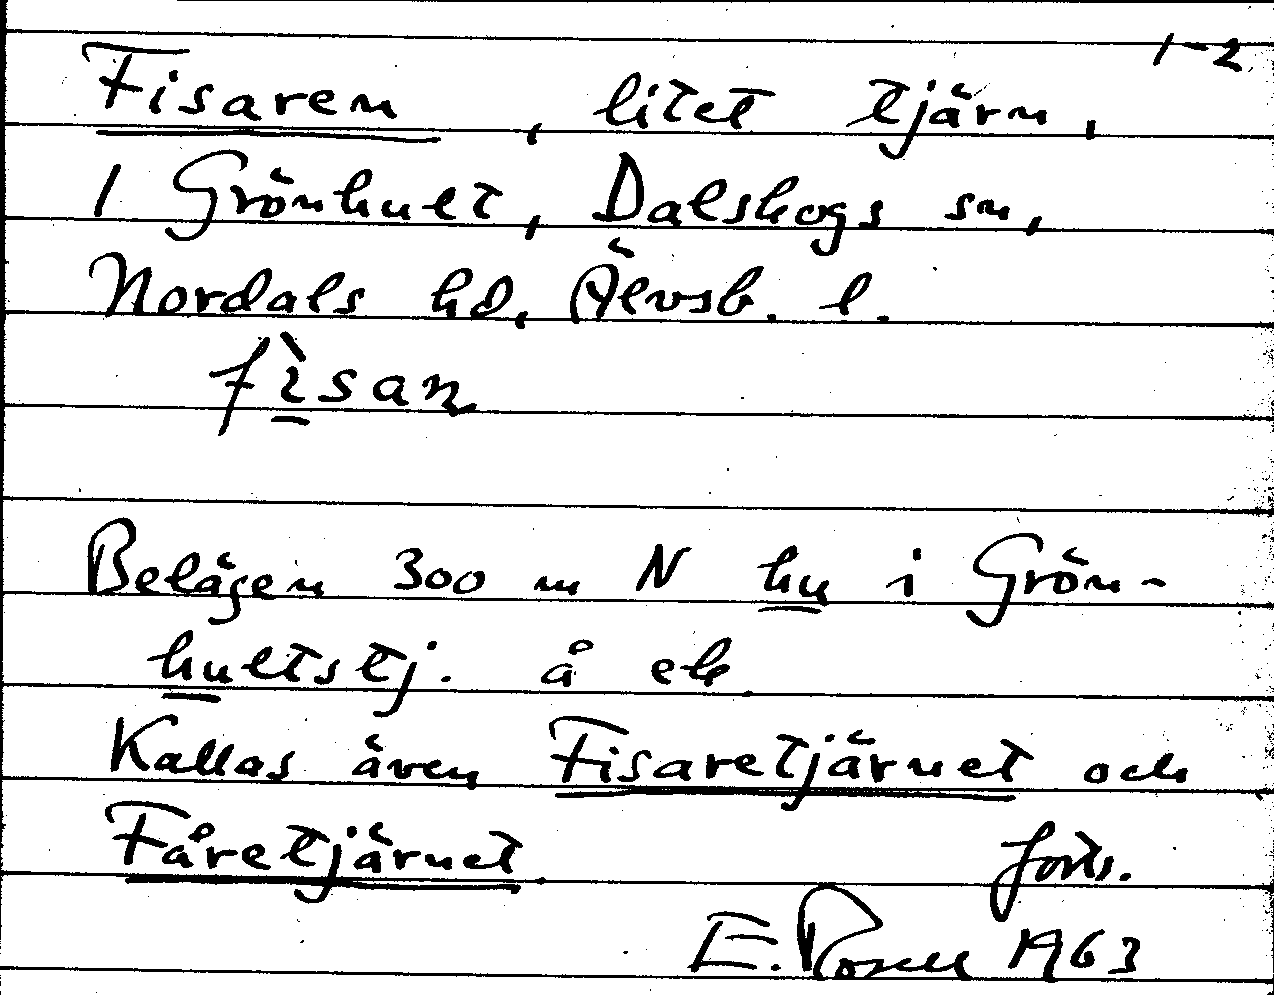 1-2
Fisaren, litet tjärn,
1 Grönhult, Dalskogs sn,
Nordals hd, Älvsb. l.
fìsan
Belägen 300 m N hu i Grön-
hultstj. å ek.
Kallas även Fisaretjärnet och
Fåretjärnet.
forts.
E. Rosell 1963